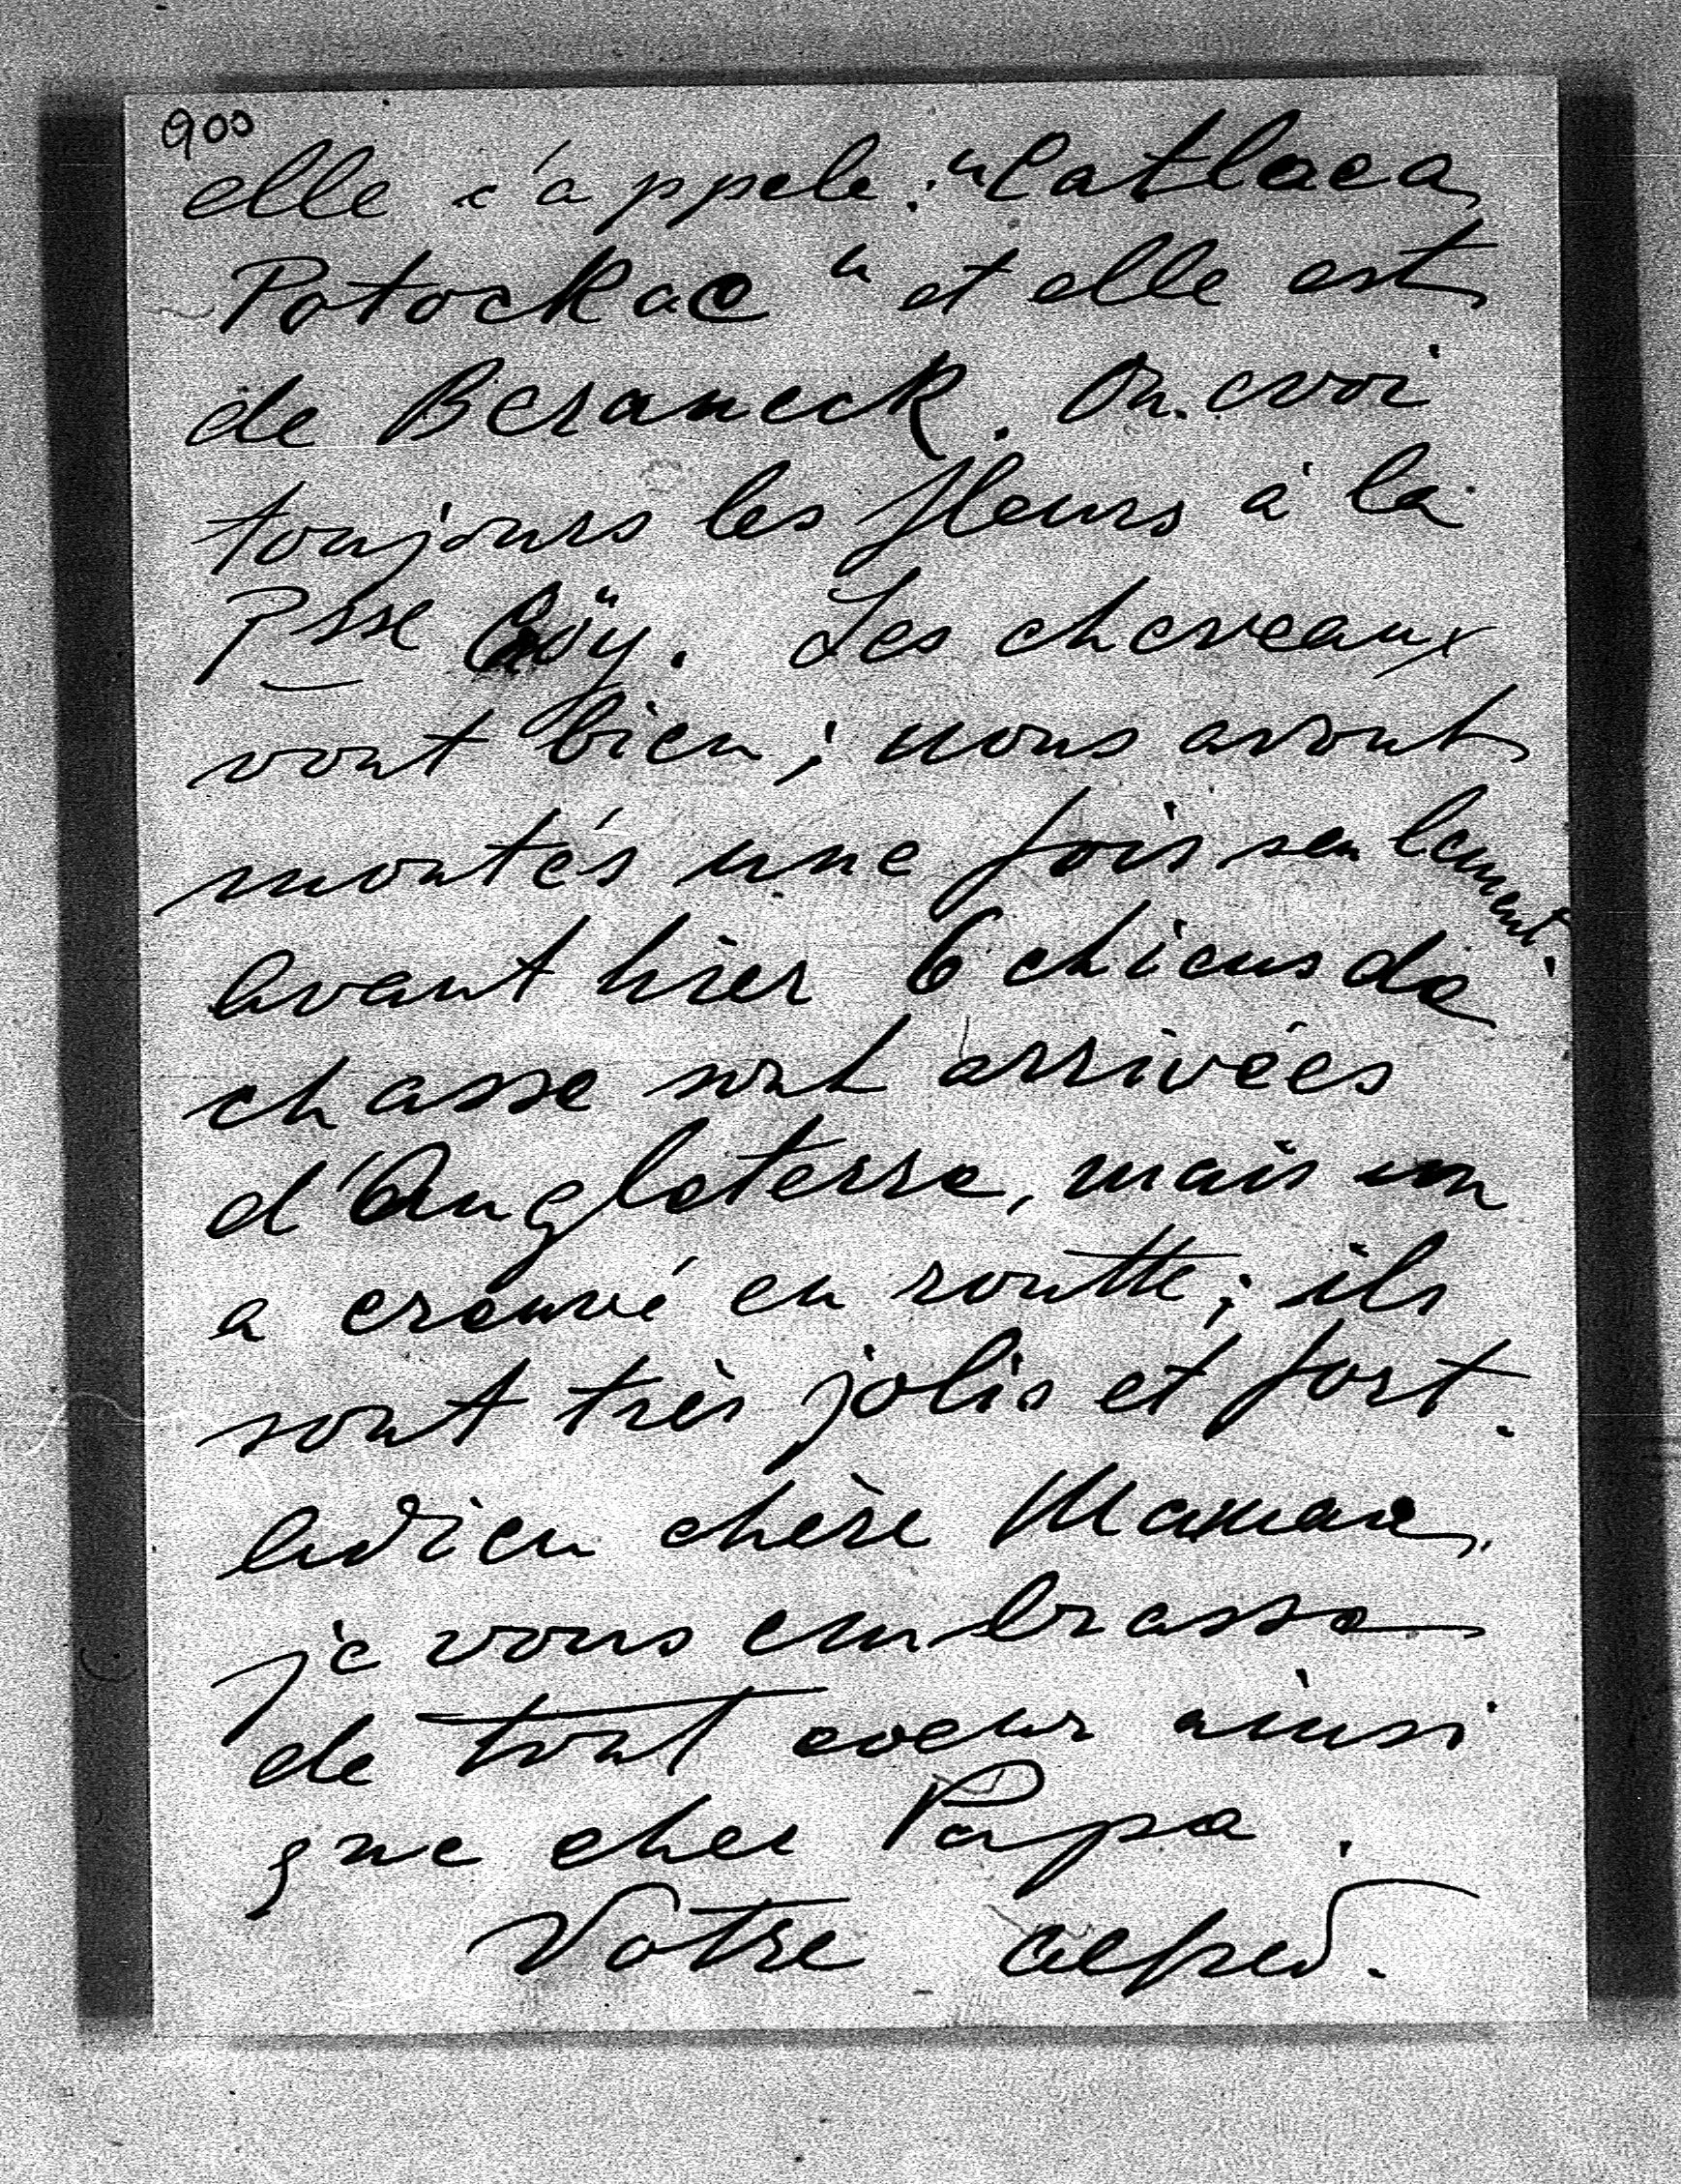 900
elle s'appele : "Catlaea
Potockae" et elle est
de Beraneck. On envoi
toujours les fleurs à la
Psse Croÿ. Les cheveaux
vont bien ; nous avont
montés une fois seulement.
Avant hièr 6 chiens de
chasse sont arrivées
d'Angleterre, mais un
a crouvé en routte ; ils
sont très jolis et fort.
Adieu chère Maman,
je vous embrasse
de tout coeur ainsi
que cher Papa.
Votre Alfred.